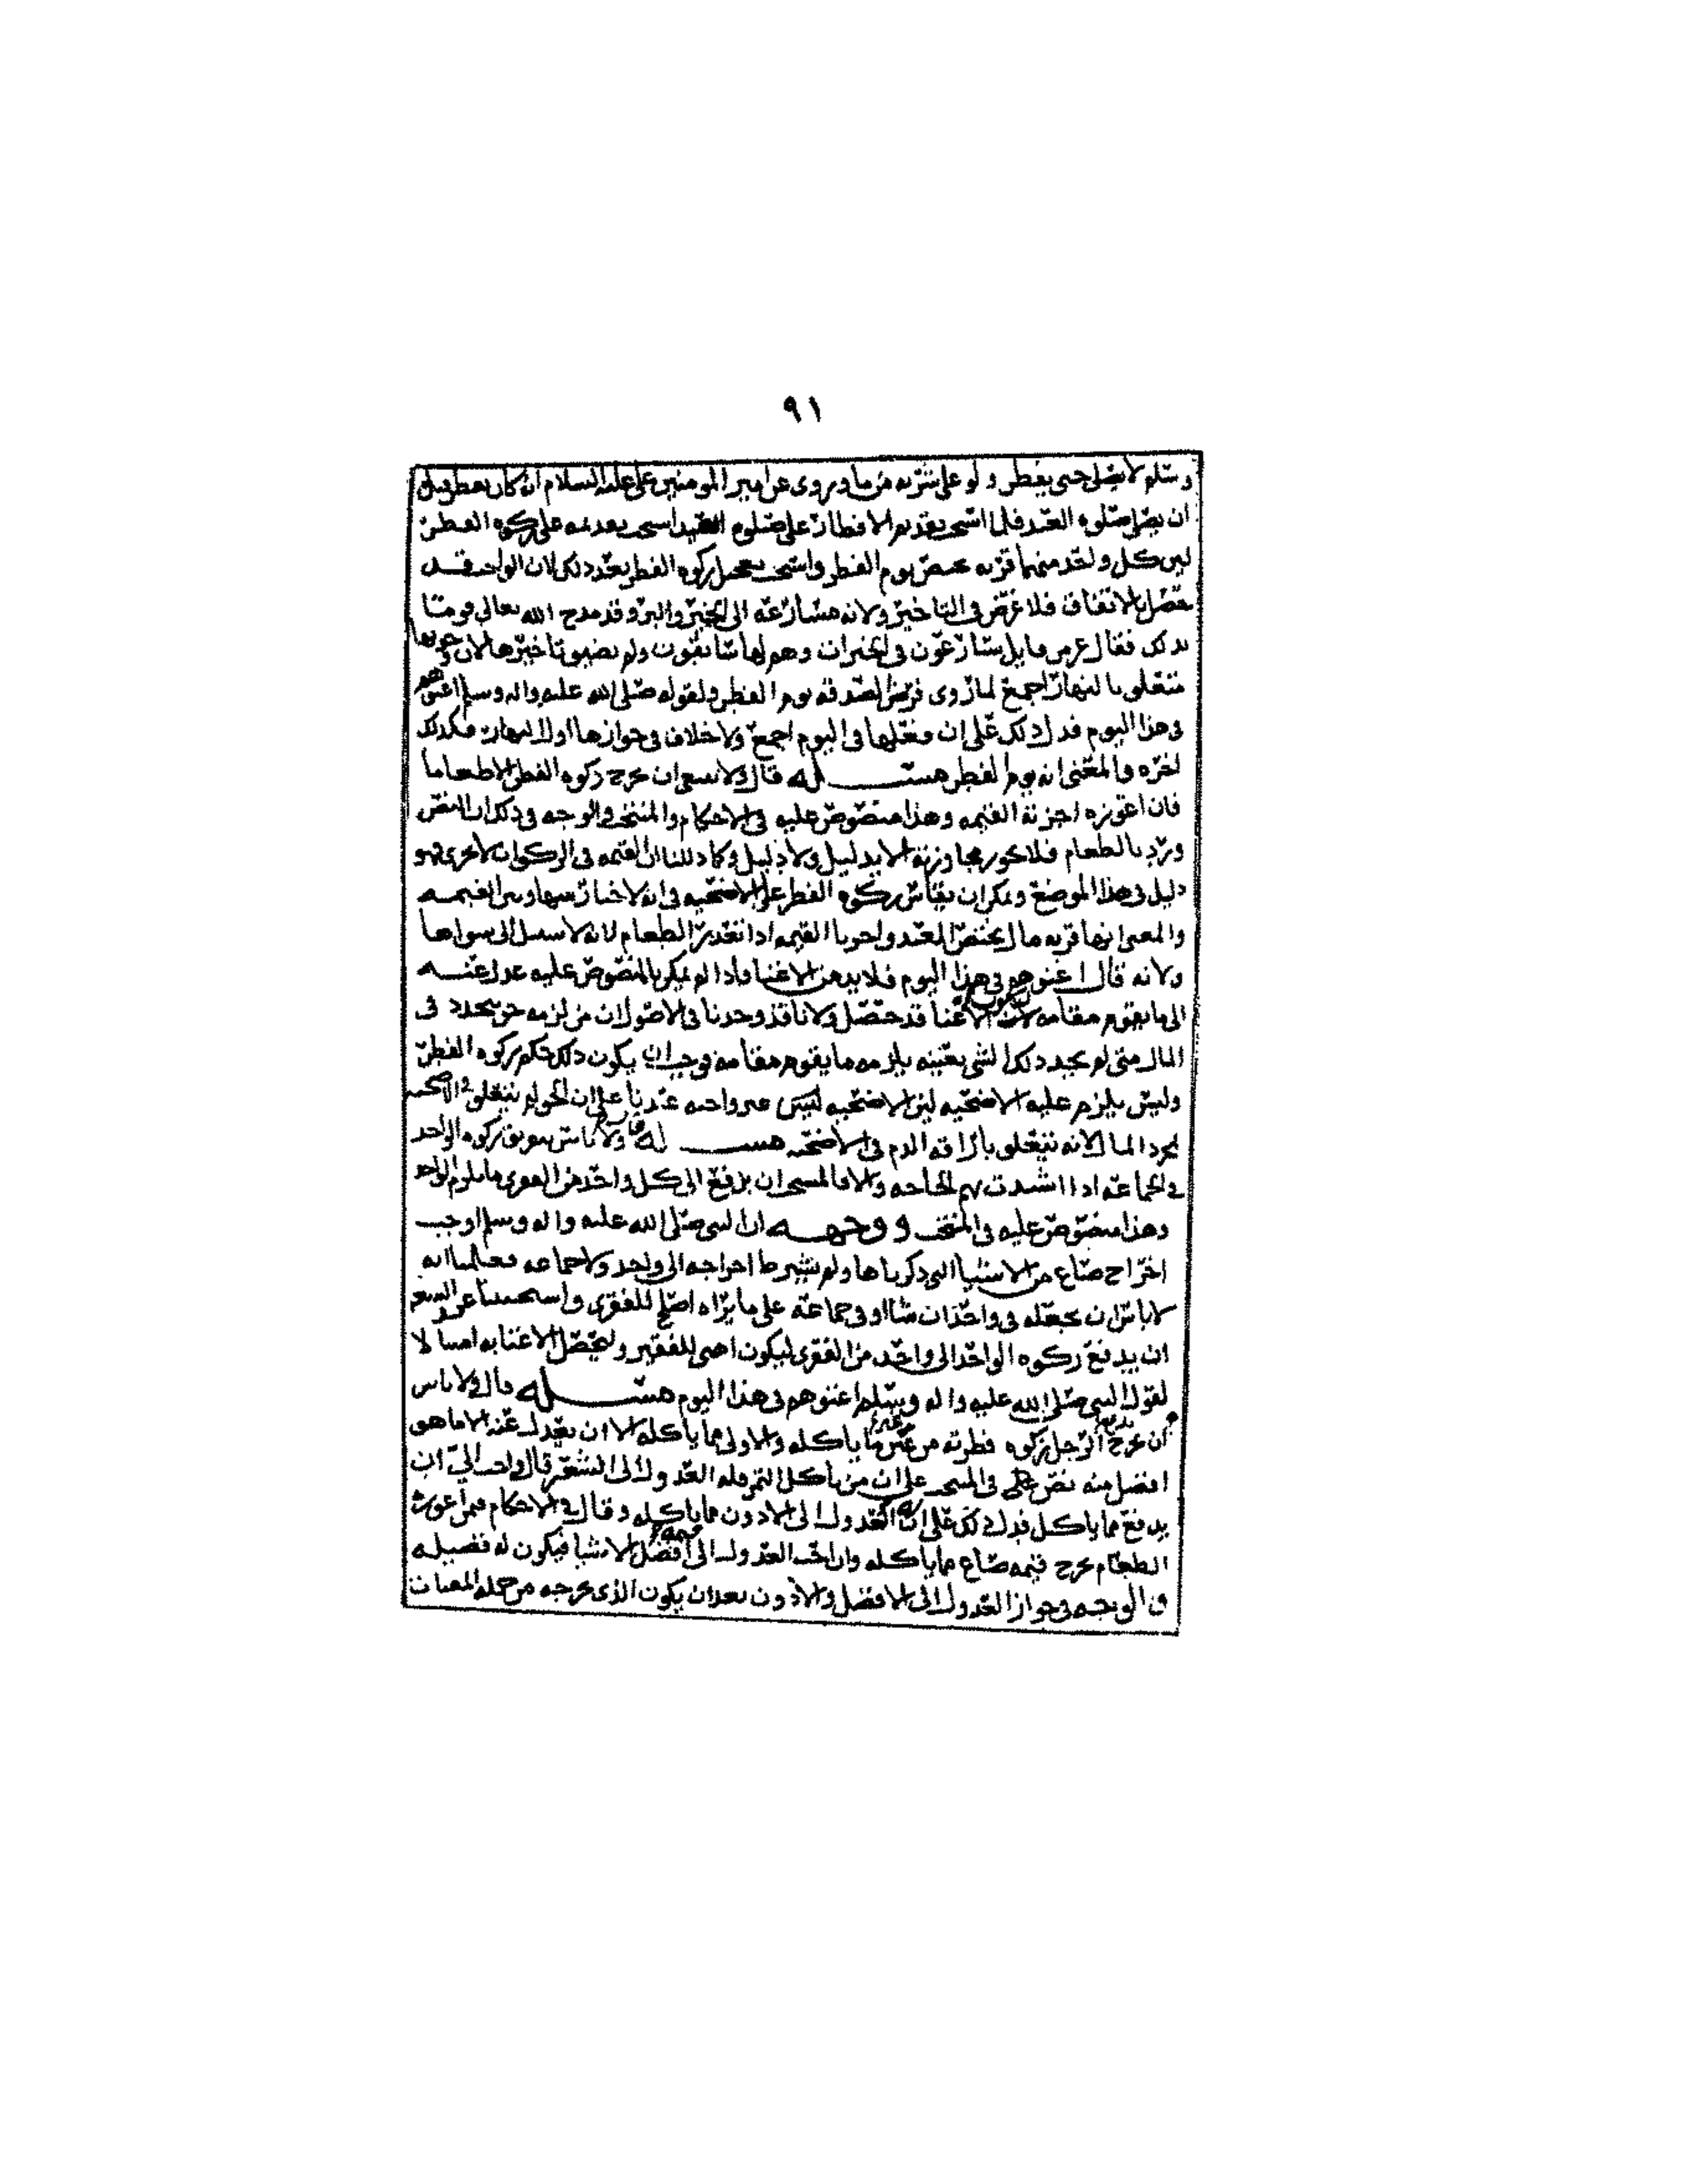 ٩١
وسلم لا يصلي حتى يفطر ولو على شربه من ما وروى عن امير المومنين علي عليه السلام انه كان يفطر قبل
ان يصلي صلوه العيد فلما استحب تقديم الافطار على صلوه العيد استحب تقديمه على زكوه الفطر
لان كل واحد منهما قربه تختص يوم الفطر واستحب تعجيل زكوه الفطر بعد ذلك لان الواجب قد
حصل بالاتفاق فلا غرض في التاخير ولانه مسارعه الى الخير والبر وقد مدح الله تعالى قوما
بذلك فقال عز من قايل يسارعون في الخيرات وهم لها سابقون ولم يضيق تاخيرها لان وجوبها
متعلق بالنهار اجمع لما روى فرض الصدقه يوم الفطر ولقوله صلى الله عليه واله وسلم اغنوهم
في هذا اليوم فدل ذلك على ان فعلها في اليوم اجمع ولا خلاف في جوازها اول النهار فكذلك
اخره والمعنى انه يوم الفطر مســـله قال ولا ينبغي ان يخرج زكوه الفطر الا طعاما
فان اعوزه اجزته القيمه وهذا منصوص عليه في الاحكام والمنتخب والوجه في ذلك ان النص
ورد بالطعام فلا يجوز مجاوزته الا بدليل ولا دليل وكما دللنا ان القيمه في الزكوات الاخرى فهو
دليل في هذا الموضع ويمكن ان يقاس زكوه الفطر على الاضحيه في انه لا خيار بينها وبين القيمه
والمعنى انها قربه مال يختص العيد واجزنا القيمه اذا تعذر الطعام لانه لا سبيل الى سواها
ولانه قال اغنوهم في هذا اليوم فلا بد من الاغنا فاذا لم يمكن بالمنصوص عليه عدل عنه
الى ما يقوم مقامه ليكون الاغنا قد حصل ولانا قد وجدنا في الاصول ان من لزمه حق يتجدد في
المال متى لم يجد ذلك الشي بعينه يلزمه ما يقوم مقامه فوجب ان يكون ذلك حكم زكوه الفطر
وليس يلزم عليه الاضحيه لان الاضحيه ليس هي واجبه عندنا على ان الحق لم يتعلق في الاضحيه
بمجرد المال لانه يتعلق باراقه الدم في الاضحيه مســـله قال ولا باس بتفريق زكوه الواحد
في الجماعه اذا اشتدت بهم الحاجه والا فالمستحب ان يدفع الى كل واحد من الفقرى ما يلزم الواحد
وهذا منصوص عليه في المنتخب ووجهـــه ان النبي صلى الله عليه واله وسلم اوجب
اخراج صاع من الاشيا التي ذكرناها ولم يشترط اخراجه الى واحد ولا جماعه فعلمنا انه
لا باس ان يجعله في واحد ان شا او في جماعه على ما يراه اصلح للفقرى واستحسنا عند السعه
ان يدفع زكوه الواحد الى واحد من الفقرى ليكون اهنى للفقير وليحصل الاغنا به امتثالا
لقول النبي صلى الله عليه واله وسلم اغنوهم في هذا اليوم مســـله قال ولا باس
ان يخرج الرجل زكوه فطرته من غير ما ياكله والاولى مما ياكله الا ان يعدل عنه الى ما هو
افضل منه نص في المنتخب على ان من ياكل التمر فله العدول الى الشعير قال واحب الي ان
يدفع مما ياكل فدل ذلك على ان له العدول الى الادون مما ياكله وقال في الاحكام فيمن اعوزه
الطعام يخرج قيمه صاع مما ياكله وان احب العدول الى قيمه افضل الاشيا فيكون له فضيله
والوجه في جواز العدول الى الافضل والادون بعد ان يكون الذي يخرجه من جمله المقتات